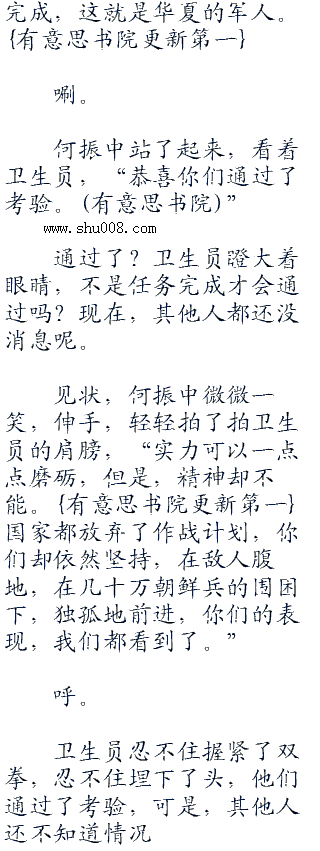 完成，这就是华夏的军人。
{有意思书院更新第一}
唰。
何振中站了起来，看着
卫生员，“恭喜你们通过了
考验。(有意思书院)”
www.shu008.com
通过了？卫生员瞪大着
眼睛，不是任务完成才会通
过吗？现在，其他人都还没
消息呢。
见状，何振中微微一
笑，伸手，轻轻拍了拍卫生
员的肩膀，“实力可以一点
点磨砺，但是，精神却不
能。{有意思书院更新第一}
国家都放弃了作战计划，你
们却依然坚持，在敌人腹
地，在几十万朝鲜兵的围困
下，独孤地前进，你们的表
现，我们都看到了。”
呼。
卫生员忍不住握紧了双
拳，忍不住埋下了头，他们
通过了考验，可是，其他人
还不知道情况